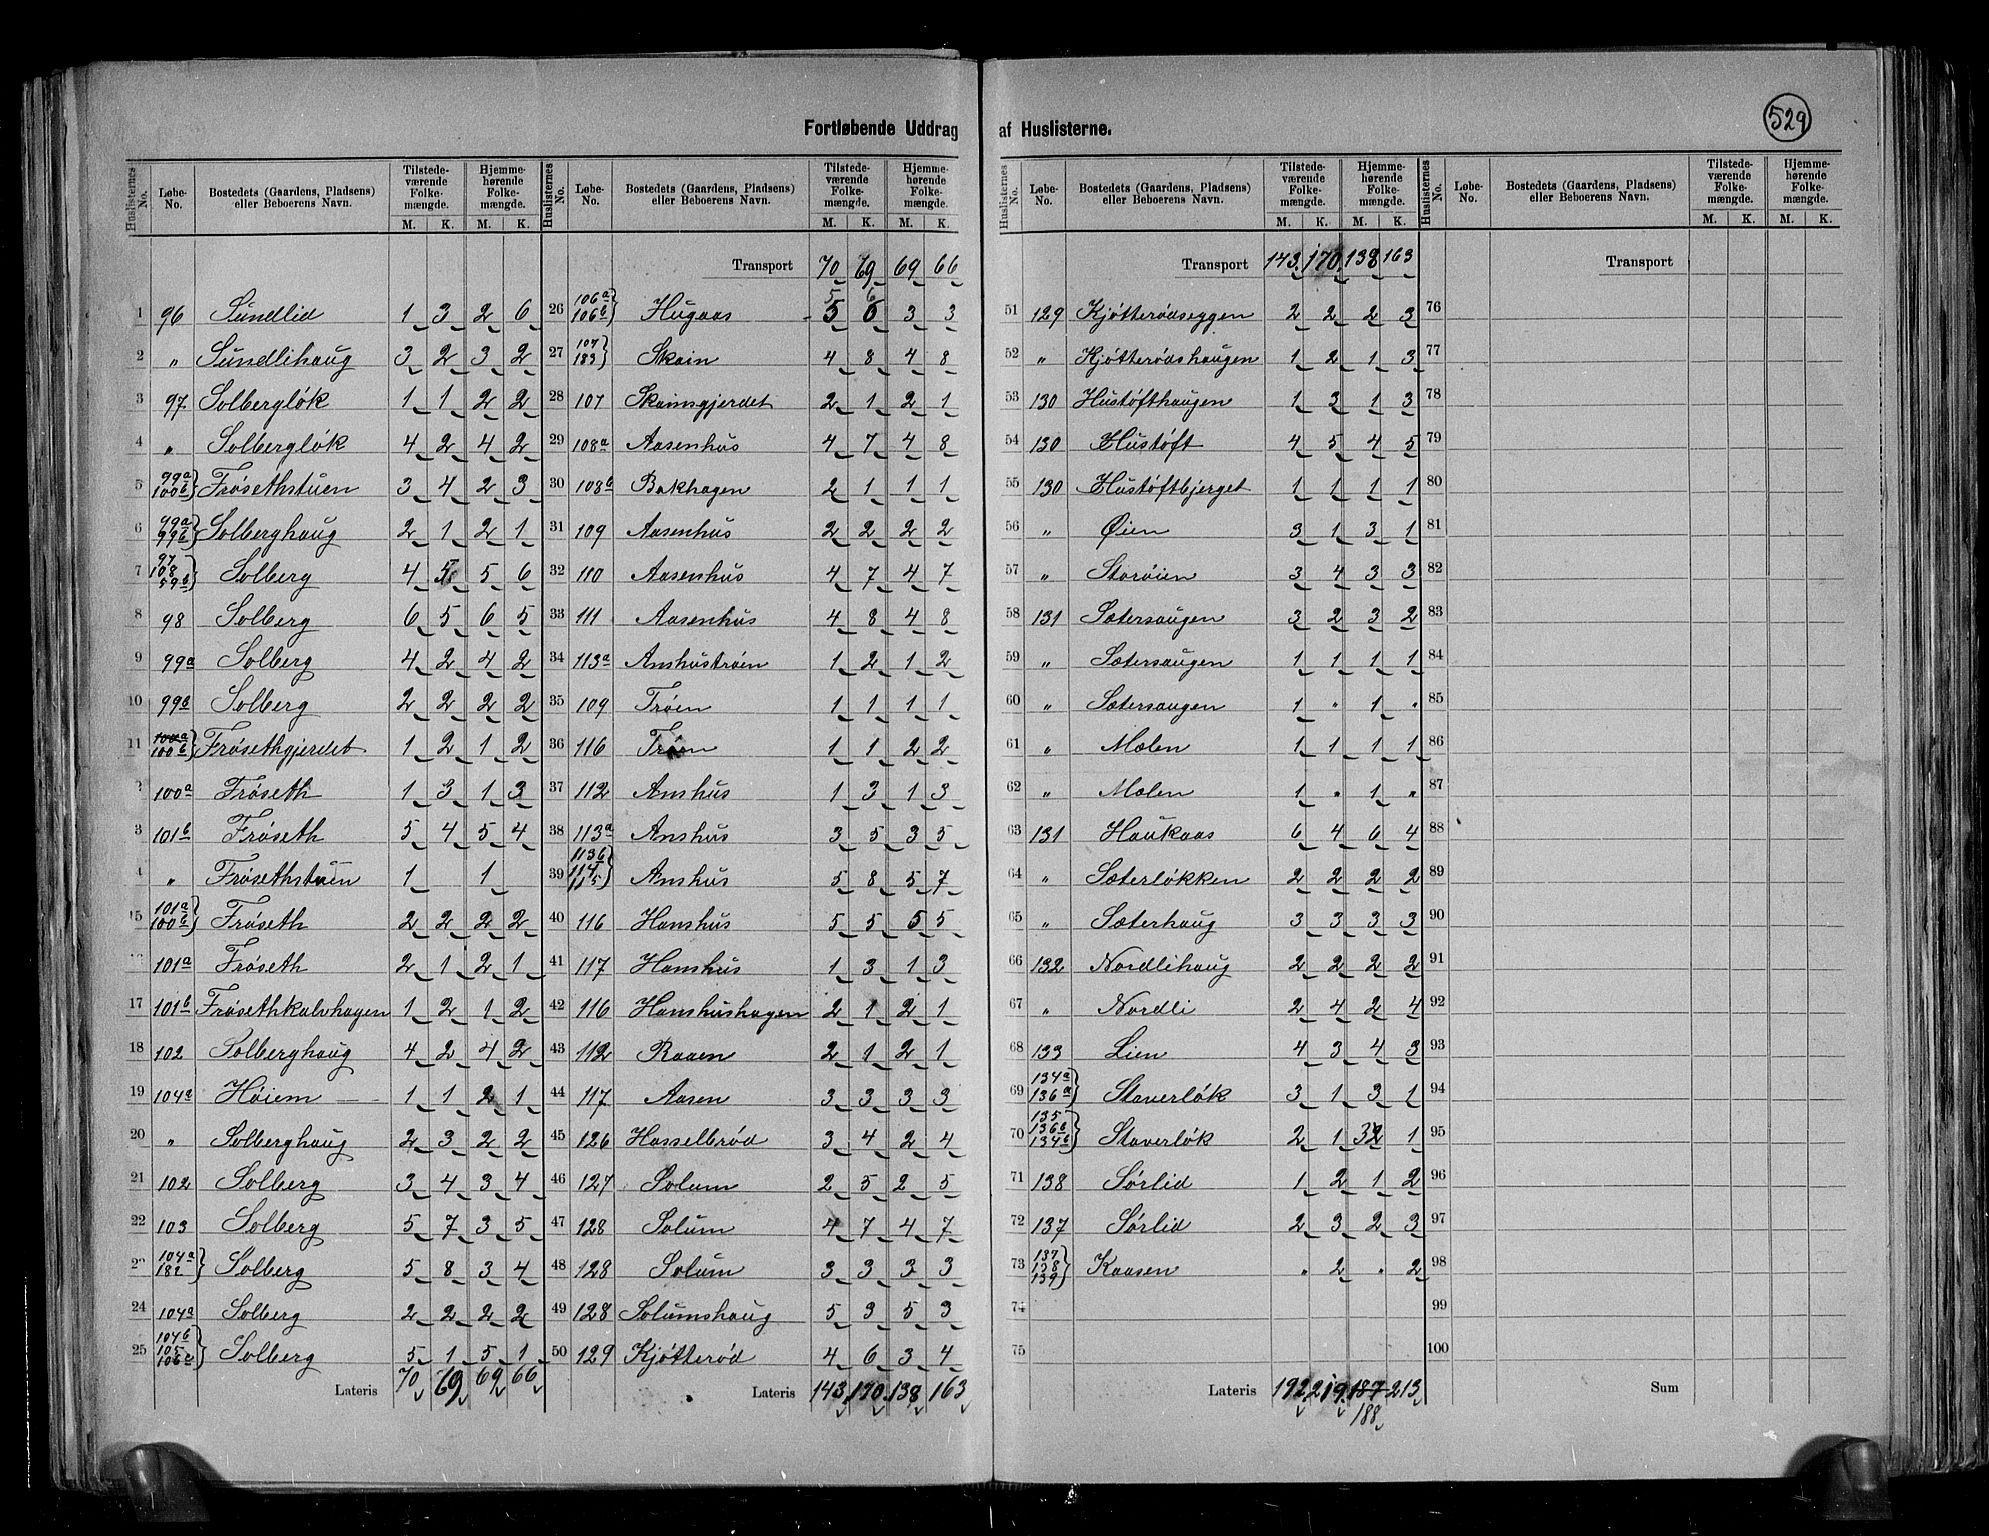 529
Fortløbende Uddrag af Huslisterne.
Huslisternes No. | Løbe-No. | Bostedets (Gaardens, Pladsens) eller Beboerens Navn. | Tilstedeværende Folkemængde. M. K. | Hjemmehørende Folkemængde. M. K.
1 96 Sundlid 1 3 2 6
2 " Sundlihaug 3 2 3 2
3 97 Solbergløk 1 1 2 2
4 " Solbergløk 4 2 4 2
5 99a 100b Frøsethstuen 3 4 2 3
6 99a 99b Solberghaug 2 1 2 1
7 97 108 59b Solberg 4 5 5 6
8 98 Solberg 6 5 6 5
9 99a Solberg 4 2 4 2
10 99b Solberg 2 2 2 2
11 100a 100b Frøsethgjerdet 1 2 1 2
2 100a Frøseth 1 3 1 3
3 101b Frøseth 5 4 5 4
4 " Frøsethstuen 1 1
15 101a 100b Frøseth 2 2 2 2
101a Frøseth 2 1 2 1
17 101b Frøsethkalvhagen 1 2 1 2
18 102 Solberghaug 4 2 4 2
19 104a Høiem 1 1 2 1
20 " Solberghaug 2 3 2 2
21 102 Solberg 3 4 3 4
22 103 Solberg 5 7 3 5
104a 182 Solberg 5 8 3 4
24 104a Solberg 2 2 2 2
25 104b 105 106c Solberg 5 1 5 1
Lateris 70 69 69 66
Huslisternes No. | Løbe-No. | Bostedets (Gaardens, Pladsens) eller Beboerens Navn. | Tilstedeværende Folkemængde. M. K. | Hjemmehørende Folkemængde. M. K.
Transport 70 69 69 66
26 106a 106b Hugaas 5 6 3 3
27 107 183 Skain 4 8 4 8
28 107 Skainsgjerdet 2 1 2 1
29 108a Aasenhus 4 7 4 8
30 108b Bakhagen 2 1 1 1
31 109 Aasenhus 2 2 2 2
32 110 Aasenhus 4 7 4 7
33 111 Aasenhus 4 8 4 8
34 113a Anshustrøen 1 2 1 2
35 109 Trøen 1 1 1 1
36 116 Trøen 1 1 2 2
37 112 Anshus 1 3 1 3
38 113a Anshus 3 5 3 5
39 113b 114 115 Anshus 5 8 5 7
40 116 Hanshus 5 5 5 5
41 117 Hanshus 1 3 1 3
42 116 Hanshushagen 2 1 2 1
43 112 Raaen 2 1 2 1
44 117 Aasen 3 3 3 3
45 126 Hasselbrød 3 4 2 4
46 127 Solum 2 5 2 5
47 128 Solum 4 7 4 7
48 128 Solum 3 3 3 3
49 128 Solumshaug 5 3 5 3
50 129 Kjøtterød 4 6 3 4
Lateris 143 170 138 163
Huslisternes No. | Løbe-No. | Bostedets (Gaardens, Pladsens) eller Beboerens Navn. | Tilstedeværende Folkemængde. M. K. | Hjemmehørende Folkemængde. M. K.
Transport 143 170 138 163
51 129 Kjøtterødseggen 2 2 2 3
52 " Kjøtterødshaugen 1 2 1 3
53 130 Hustøfthaugen 1 3 1 3
54 130 Hustøft 4 5 4 5
55 130 Hustøftbjerget 1 1 1 1
56 " Øien 3 1 3 1
57 " Storøien 3 4 3 3
58 131 Sætersaugen 3 2 3 2
59 " Sætersaugen 1 1 1 1
60 " Sætersaugen 1 " 1 "
61 " Mælen 1 1 1 1
62 " Mælen 1 " 1 "
63 131 Haukaas 6 4 6 4
64 " Sæterløkken 2 2 2 2
65 " Sæterhaug 3 3 3 3
66 132 Nordlihaug 2 2 2 2
67 " Nordli 2 4 2 4
68 133 Lien 4 3 4 3
69 134a 136a Staverløk 3 1 3 1
70 135 136b 134b Staverløk 2 1 32 1
71 138 Sørlid 1 2 1 2
72 137 Sørlid 2 3 2 3
73 137 138 139 Kaasen " 2 " 2
74
75
Lateris 192 219 187 213
188
Huslisternes No. | Løbe-No. | Bostedets (Gaardens, Pladsens) eller Beboerens Navn. | Tilstedeværende Folkemængde. M. K. | Hjemmehørende Folkemængde. M. K.
Transport
76
77
78
79
80
81
82
83
84
85
86
87
88
89
90
91
92
93
94
95
96
97
98
99
100
Sum